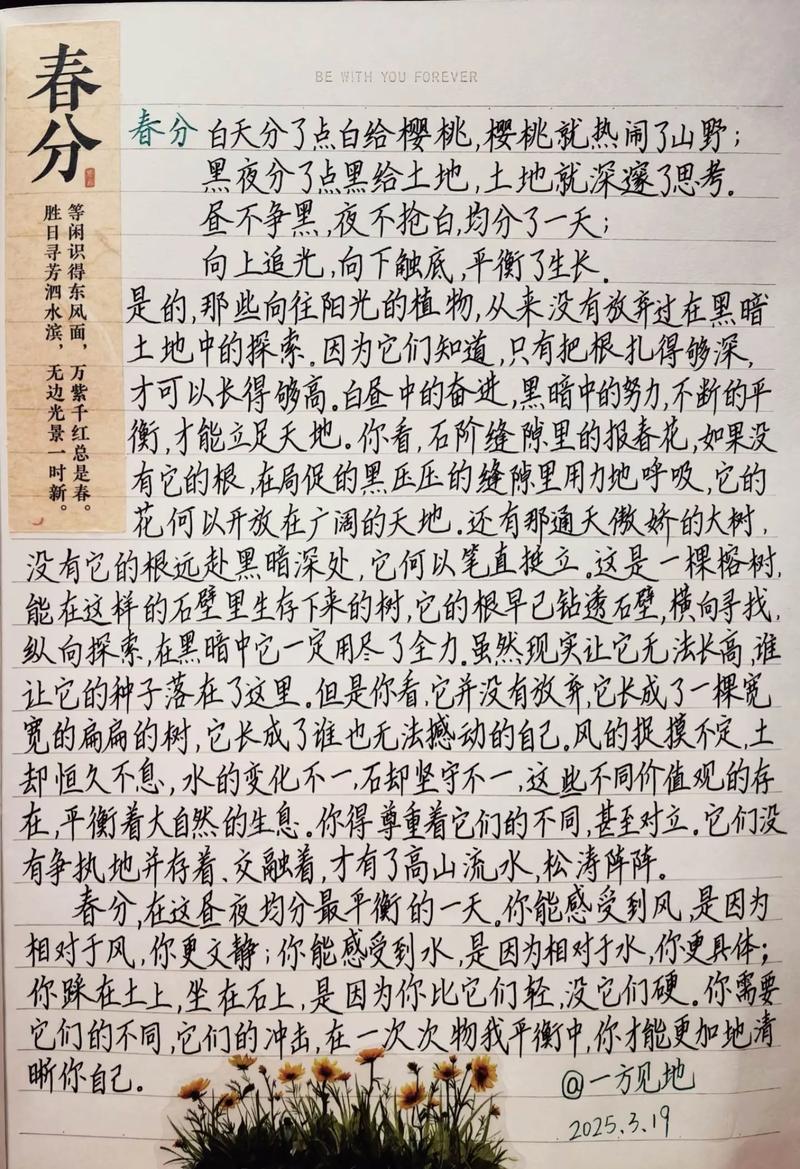 BE WITH YOU FOREVER
春分
胜日寻芳泗水滨，无边光景一时新。
等闲识得东风面，万紫千红总是春。
春分 白天分了点白给樱桃,樱桃就热闹了山野；
黑夜分了点黑给土地,土地就深邃了思考.
昼不争黑,夜不抢白,均分了一天；
向上追光,向下触底,平衡了生长.
是的,那些向往阳光的植物,从来没有放弃过在黑暗
土地中的探索.因为它们知道,只有把根扎得够深,
才可以长得够高.白昼中的奋进,黑暗中的努力,不断的平
衡,才能立足天地.你看,石阶缝隙里的报春花,如果没
有它的根,在局促的黑压压的缝隙里用力地呼吸,它的
花何以开放在广阔的天地.还有那通天傲娇的大树,
没有它的根远赴黑暗深处,它何以笔直挺立.这是一棵榕树,
能在这样的石壁里生存下来的树,它的根早已钻透石壁,横向寻找,
纵向探索,在黑暗中它一定用尽了全力.虽然现实让它无法长高,谁
让它的种子落在了这里.但是你看,它并没有放弃,它长成了一棵宽
宽的扁扁的树,它长成了谁也无法撼动的自己.风的捉摸不定,土
却恒久不息,水的变化不一,石却坚守不一,这些不同价值观的存
在,平衡着大自然的生息.你得尊重着它们的不同,甚至对立.它们没
有争执地并存着、交融着,才有了高山流水,松涛阵阵。
春分,在这昼夜均分最平衡的一天.你能感受到风,是因为
相对于风,你更文静；你能感受到水,是因为相对于水,你更具体；
你踩在土上,坐在石上,是因为你比它们轻,没它们硬.你需要
它们的不同,它们的冲击,在一次次物我平衡中,你才能更加地清
晰你自己。
@一方见地
2025.3.19